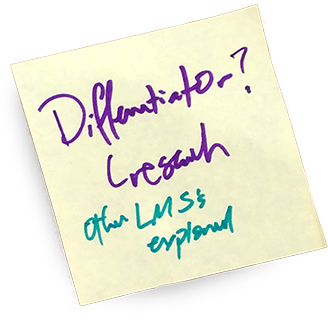 Differentiator?
(research
other LMS's
explored